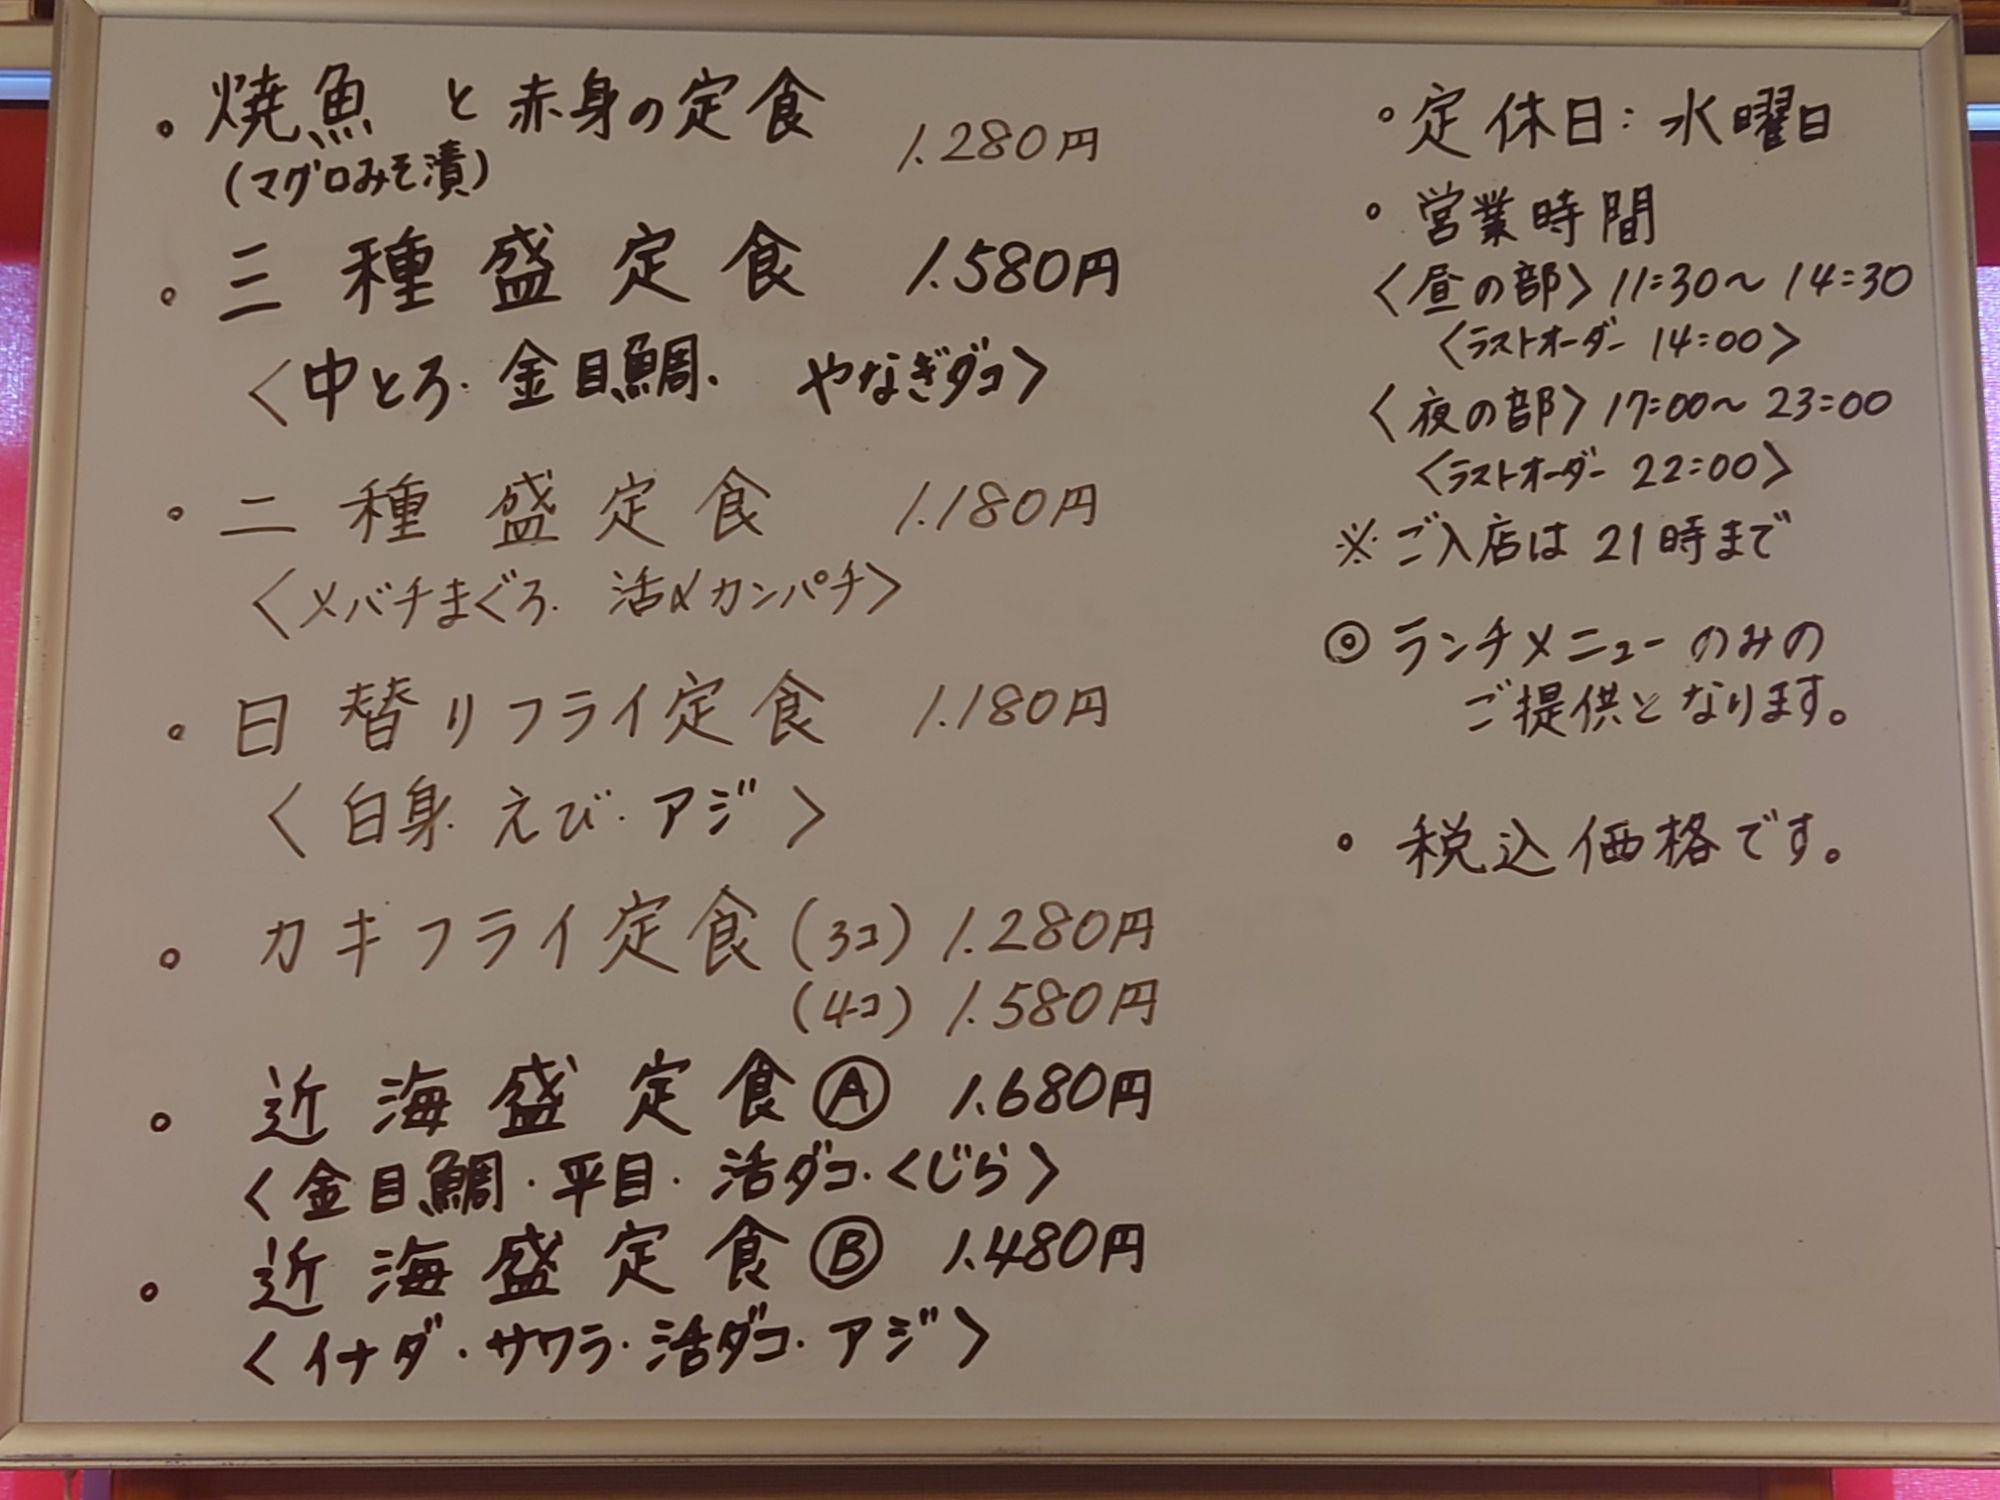 ・焼魚と赤身の定食 1.280円
(マグロみそ漬)
・三種盛定食 1.580円
〈中とろ・金目鯛・やなぎダコ〉
・二種盛定食 1.180円
〈メバチまぐろ・活〆カンパチ〉
・日替りフライ定食 1.180円
〈白身・えび・アジ〉
・カキフライ定食(3コ) 1.280円
(4コ) 1.580円
・近海盛定食Ⓐ 1.680円
〈金目鯛・平目・活ダコ・くじら〉
・近海盛定食Ⓑ 1.480円
〈イナダ・サワラ・活ダコ・アジ〉
・定休日:水曜日
・営業時間
〈昼の部〉11:30〜14:30
〈ラストオーダー 14:00〉
〈夜の部〉17:00〜23:00
〈ラストオーダー 22:00〉
※ご入店は21時まで
◎ランチメニューのみの
ご提供となります。
・税込価格です。